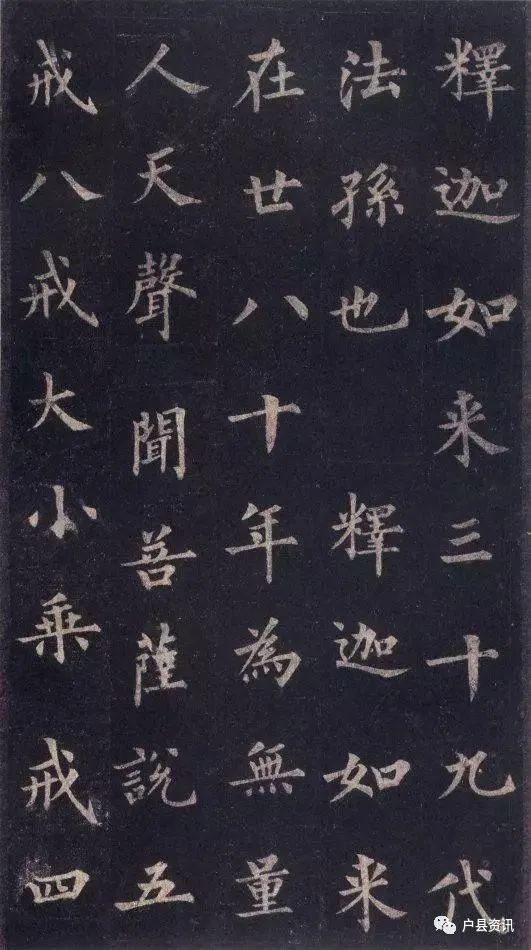 釋迦如来三十九代
法孫也 釋迦如来
在世八十年為無量
人天聲聞菩薩說五
戒八戒大小乗戒四
户县资讯